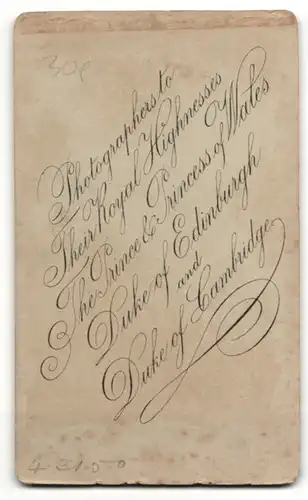 30f
Photographers to
Their Royal Highnesses
The Prince & Princess of Wales
Duke of Edinburgh
and
Duke of Cambridge
4-3150